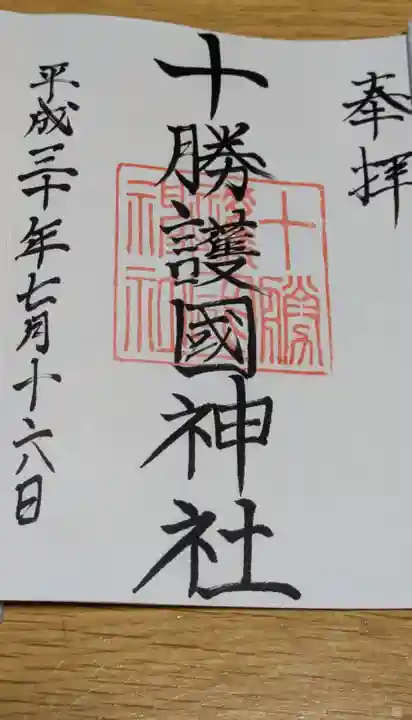 奉拝
十勝護國神社
十勝護國神社
平成三十年七月十六日